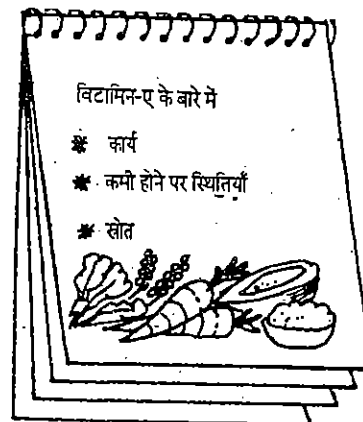 विटामिन-ए के बारे में
* कार्य
* कमी होने पर स्थितियाँ
* स्रोत